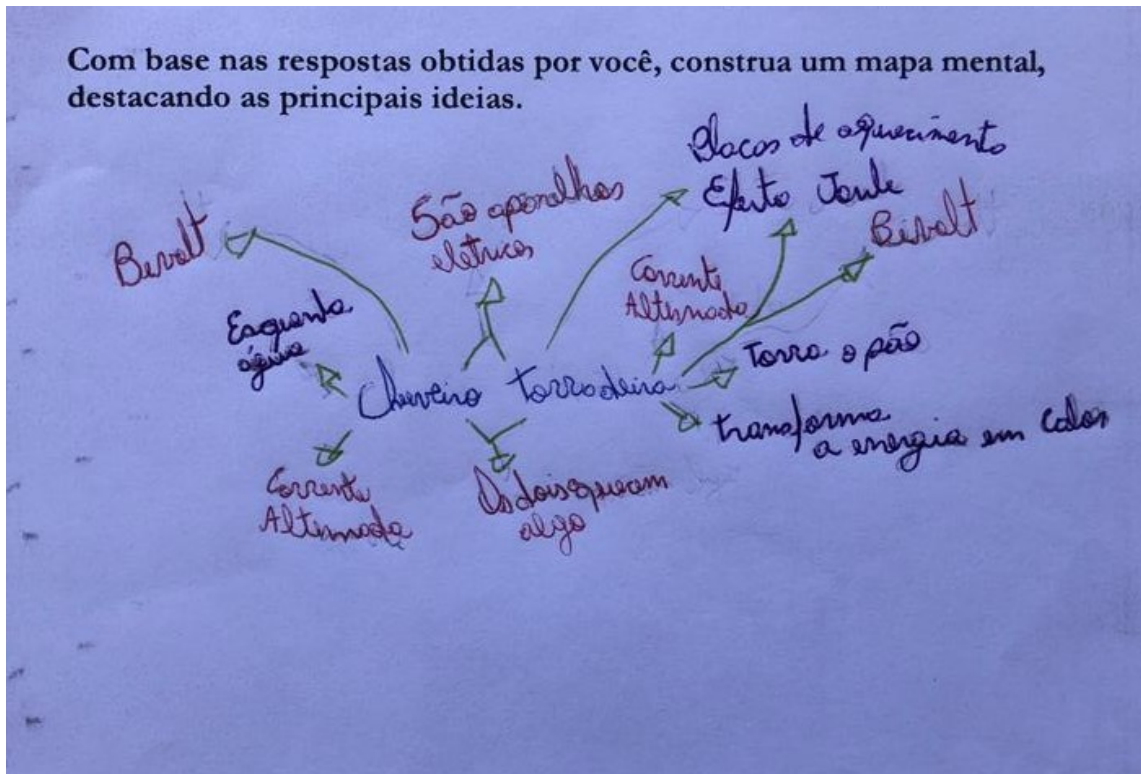 Com base nas respostas obtidas por você, construa um mapa mental,
destacando as principais ideias.
Placas de aquecimento
Efeito Joule
São aparelhos
eletricos
Bivolt
Bivolt
Corrente
Alternada
Esquenta
água
Torra o pão
Chuveiro
torradeira
transforma
a energia em calor
Corrente
Alternada
Os dois
algo